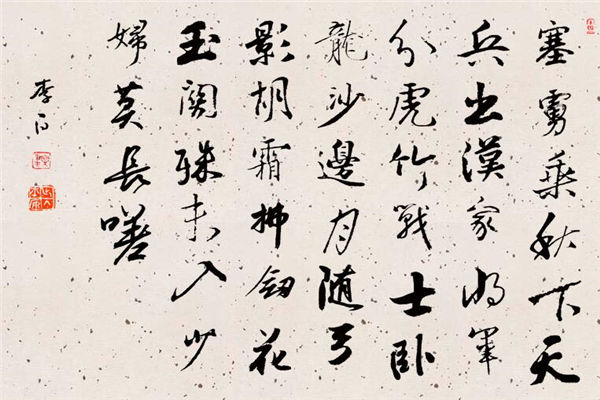 塞虜乘秋下天
兵出漢家将軍
分虎竹戰士卧
龍沙邊月随弓
影胡霜拂劒花
玉關殊未入少
婦莫長嗟
李白